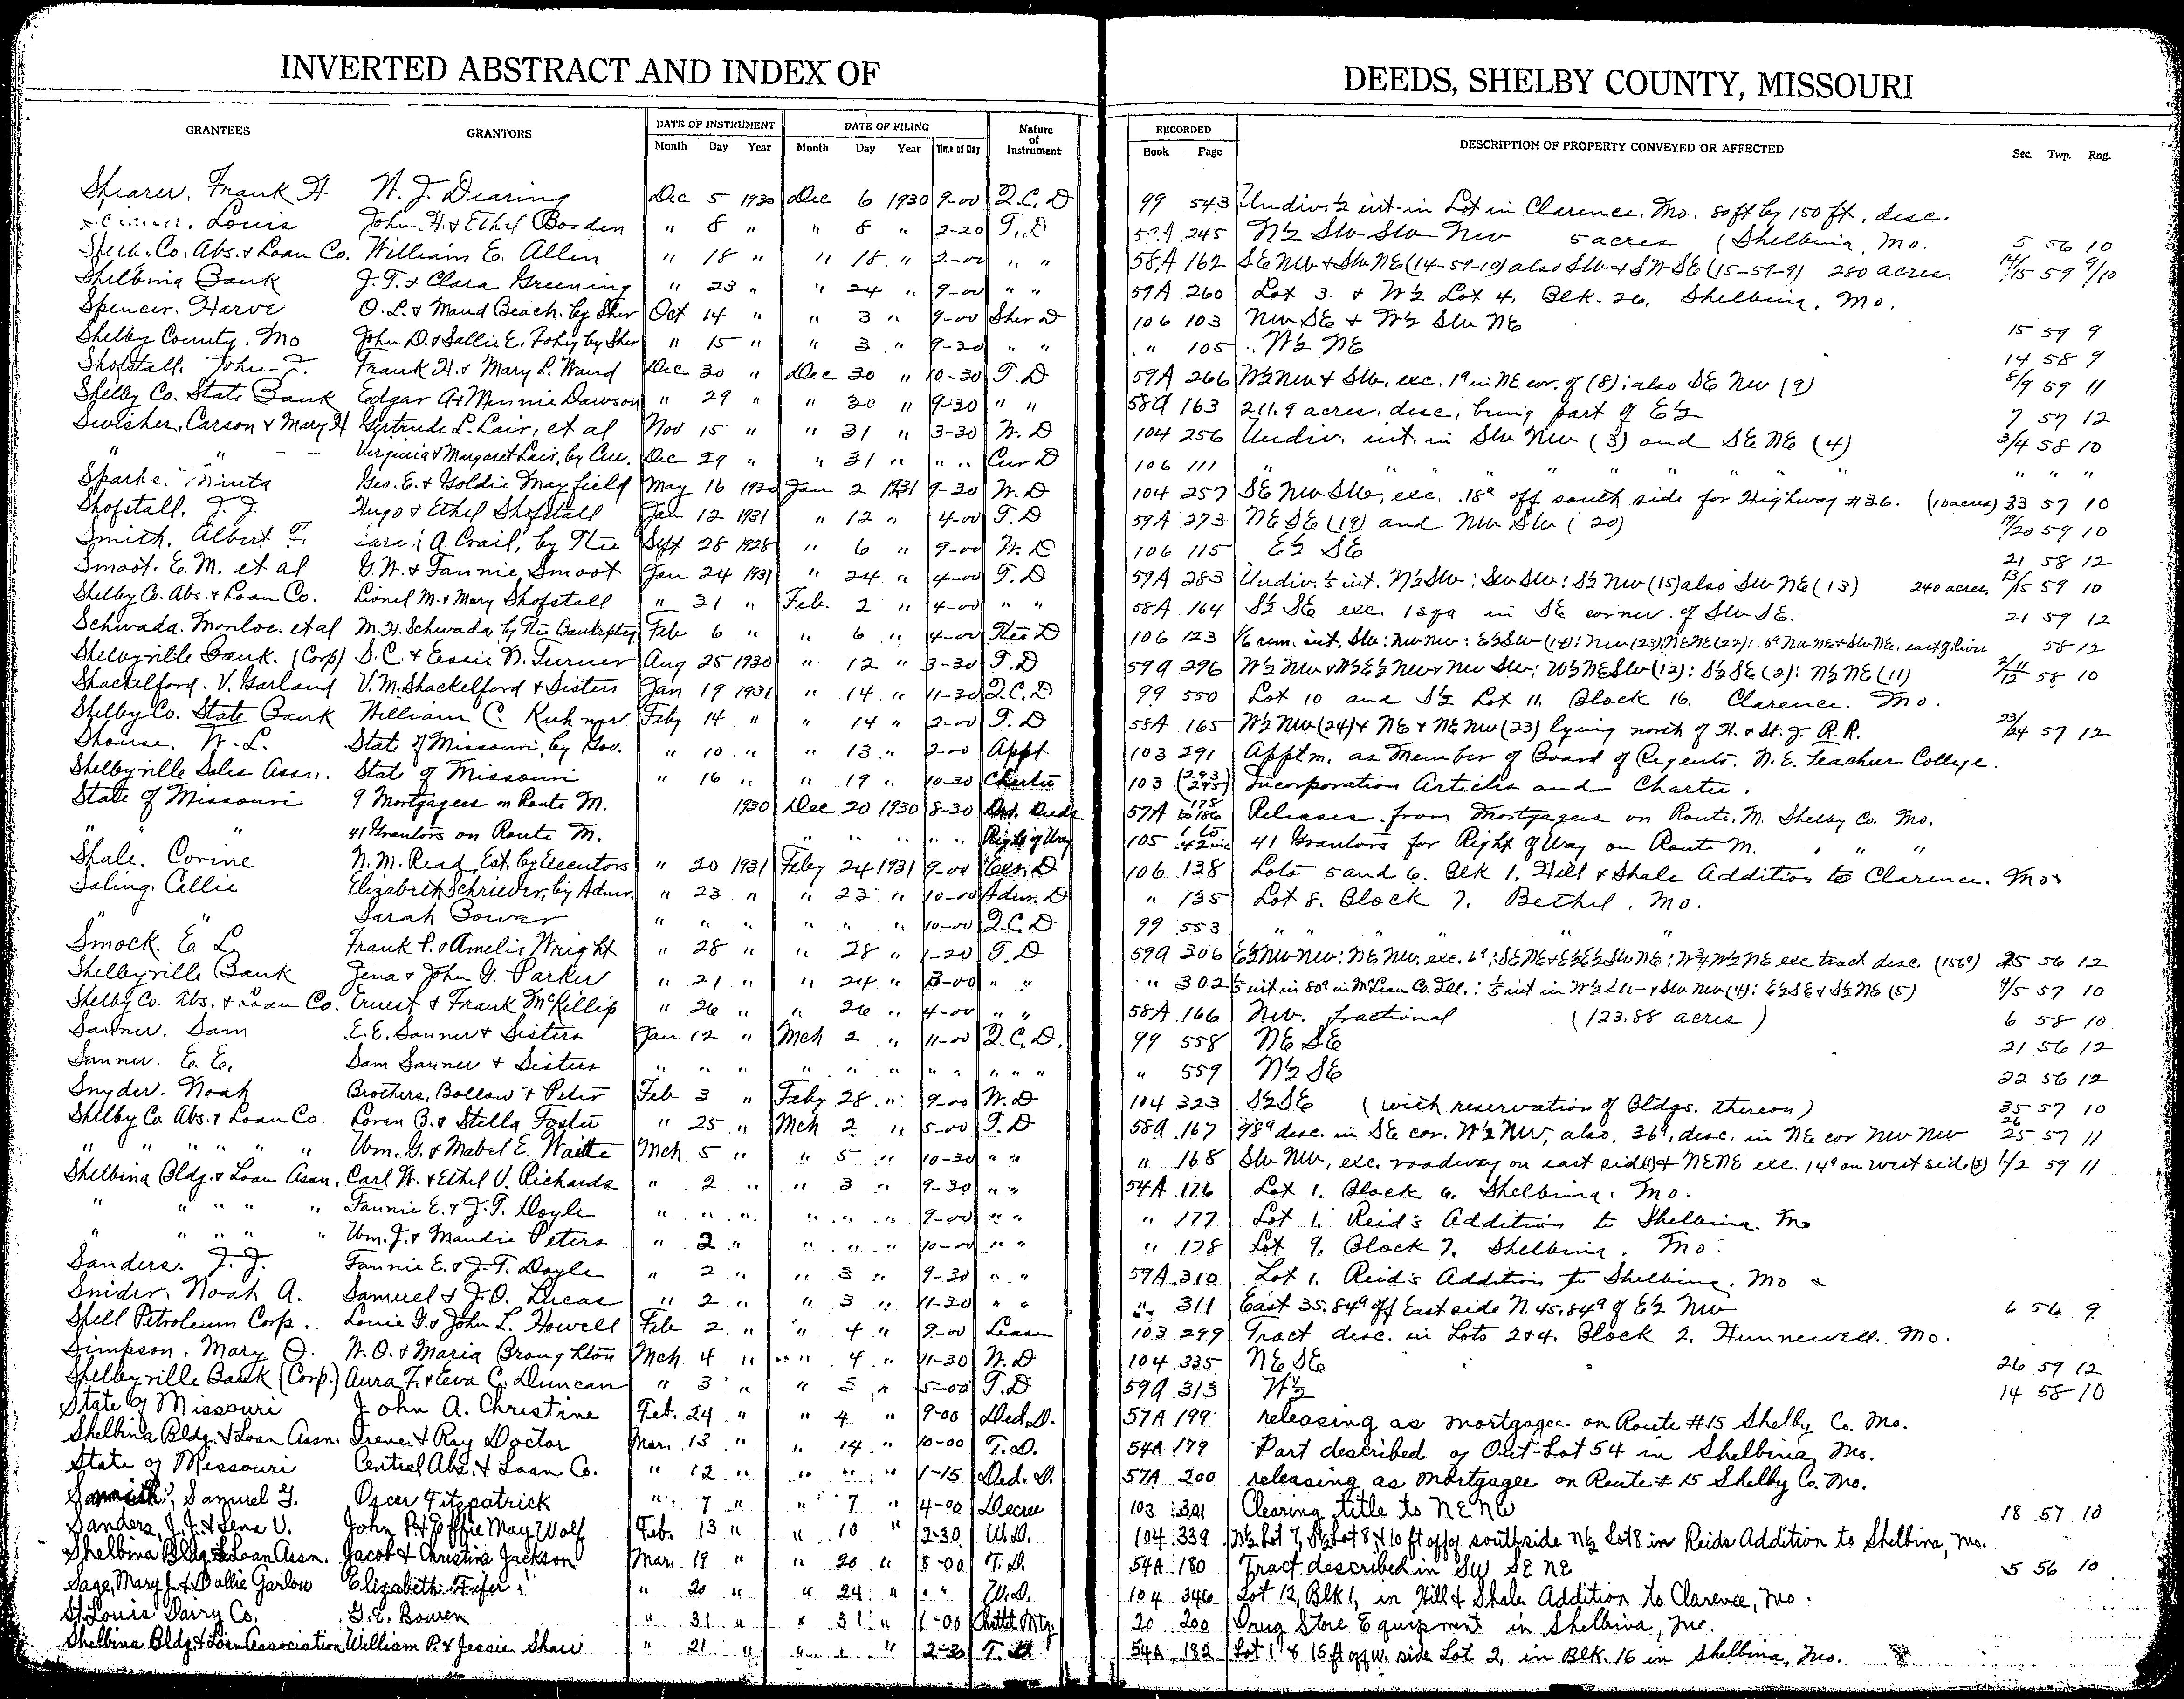 INVERTED ABSTRACT AND INDEX OF DEEDS, SHELBY COUNTY, MISSOURI
GRANTEES GRANTORS DATE OF INSTRUMENT DATE OF FILING Nature of Instrument RECORDED DESCRIPTION OF PROPERTY CONVEYED OR AFFECTED Sec. Twp. Rng.
Month Day Year Month Day Year Time of Day Book Page
Shearer, Frank H W. J. Dearing Dec 5 1930 Dec 6 1930 9-00 Q.C.D 99 543 Undiv. ½ int. in Lot in Clarence, Mo. 80ft by 150 ft, desc.
Louis John H. & Ethel Borden " 8 " " 8 " 2-20 T.D 59A 245 N½ SW SW NW 5 acres (Shelbina, Mo. 5 56 10
Shelb. Co. Abs. & Loan Co. William E. Allen " 18 " " 18 " 2-00 " " 58A 162 SE NW & SW NE (14-59-10) also SW & SW SE (15-59-9) 280 acres. 14/15 59 9/10
Shelbina Bank J. T. & Clara Greening " 23 " " 24 " 9-00 " " 59A 260 Lot 3. & W½ Lot 4. Blk. 26. Shelbina, Mo.
Spencer. Harve O. L. & Maud Beach. by Sher Oct 14 " " 3 " 9-00 Sher D 106 103 NW SE & W½ SW NE 15 59 9
Shelby County. Mo John D. & Sallie E. Fohey by Sher " 15 " " 3 " 9-20 " " " 105 W½ NE 14 58 9
Shofstall. John F. Frank H. & Mary L. Wand Dec 30 " Dec 30 " 10-30 T.D 59A 266 W½ NW & SW, exc. 1ª in NE cor. of (8); also SE NW (9) 8/9 59 11
Shelby Co. State Bank Edgar A & Minnie Dawson " 29 " " 30 " 9-30 " " 58A 163 211.9 acres, desc, being part of E½ 7 57 12
Swisher, Carson & Mary H Gertrude L. Lair, et al Nov 15 " " 31 " 3-30 W.D 104 256 Undiv. int. in SW NW (3) and SE NE (4) 3/4 58 10
" " Virginia & Margaret Lair, by Cur. Dec 29 " " 31 " " " Cur D 106 111 " " " " " " " " " " "
Sparks. Minta Geo. E. & Goldie Mayfield May 16 1930 Jan 2 1931 9-30 W.D 104 257 SE NW SW, exc. .18ª off south side for Highway #36. (10 acres) 33 57 10
Shofstall. J. J. Hugo & Ethel Shofstall Jan 12 1931 " 12 " 4-00 T.D 59A 273 NE SE (19) and NW SW (20) 19/20 59 10
Smith. Albert F. A. Crail, by Ttee Sept 28 1928 " 6 " 9-00 W.D 106 115 E½ SE 21 58 12
Smoot. E. M. et al G. W. & Fannie Smoot Jan 24 1931 " 24 " 4-00 T.D 59A 283 Undiv. ⅕ int. N½ SW: SW SW: S½ NW (15) also SW NE (13) 240 acres, 13/15 59 10
Shelby Co. Abs. & Loan Co. Lionel M. & Mary Shofstall " 31 " Feb. 2 " 4-00 " " 58A 164 S½ SE exc. 1 sqa in SE corner of SW SE. 21 59 12
Schwada. Monloe. et al M. H. Schwada by Ttee Bankrptcy Feb 6 " " 6 " 4-00 Ttee D 106 123 58 12
Shelbyville Bank. (Corp) S. C. & Essie N. Turner Aug 25 1930 " 12 " 3-30 T.D 59A 296 W½ NW & W½ E½ NW & NW SW: W½ NE SW (12): S½ SE (2): N½ NE (11) 2/11/12 58 10
Shackelford. V. Garland V. M. Shackelford & Sisters Jan 19 1931 " 14 " 11-30 Q.C.D 99 550 Lot 10 and S½ Lot 11. Block 16. Clarence. Mo.
Shelby Co. State Bank William C. Feby 14 " " 14 " 2-00 T.D 58A 165 W½ NW (24) & NE & NE NW (23) lying north of H. & St. J. R.R. 23/24 57 12
Shouse. W. L. State of Missouri, by Gov. " 10 " " 13 " 2-00 Appt. 103 291 Apptm. as Member of Board of Regents. N.E. Teachers College.
Shelbyville Sales Assn. State of Missouri " 16 " " 19 " 10-30 Charter 103 (293 295) Incorporation Articles and Charter.
State of Missouri 9 Mortgagees on Route M. 1930 Dec 20 1930 8-30 Ded. Deeds 57A 178 to 186 Releases from Mortgagees on Route. M. Shelby Co. Mo.
" " 41 Grantors on Route M. " " " " " Right of Way 105 1 to 42 inc 41 Grantors for Right of Way on Route M. " " "
Shale. Corine N. M. Read, Est. by Executors " 20 1931 Feby 24 1931 9-00 Exr. D 106 138 Lots 5 and 6. Blk 1. Hill & Shale Addition to Clarence. Mo.
Saling. Allie Elizabeth Schriever, by Admr. " 23 " " 23 " 10-00 Admr. D " 135 Lot 8. Block 7. Bethel. Mo.
" " Sarah Bower " " " " " " 10-00 Q.C.D 99 553 " " " " "
Smock. E. L. Frank P. & Amelia Wright " 28 " " 28 " 1-20 T.D 59A 306 25 56 12
Shelbyville Bank Jena & John G. Parker " 21 " " 24 " 3-00 " " " 302 ⅕ int in 80ª in McLean Co. Ill.: ⅕ int in W½ SW & SW NW (4): E½ SE & S½ NE (5) 4/5 57 10
Shelby Co. Abs. & Loan Co. Ernest & Frank McKillip " 26 " " 26 " 4-00 " " 58A 166 NW. fractional (123.88 acres) 6 58 10
Sanner. Sam E. E. Sanner & Sisters Jan 12 " Mch 2 " 11-00 Q.C.D. 99 558 NE SE 21 56 12
Sanner. E. E. Sam Sanner & Sisters " " " " " " " " " " " " 559 N½ SE 22 56 12
Snyder. Noah Brothers, Bollow & Peter Feb 3 " Feby 28 " 9-00 W.D 104 323 S½ SE (with reservation of Bldgs. thereon) 35 57 10
Shelby Co. Abs. & Loan Co. Loren B. & Stella Foster " 25 " Mch 2 " 5-00 T.D 58A 167 desc. in SE cor. W½ NW, also, 36ª, desc. in NE cor NW NW 26 25 57 11
" " " " " " Wm. G. & Mabel E. Waitte Mch 5 " " 5 " 10-30 " " " 168 SW NW, exc. roadway on east side (1) & NE NE exc. 14ª on west side (2) 1/2 59 11
Shelbina Bldg. & Loan Assn. Carl W. & Ethel V. Richards " 2 " " 3 " 9-30 " " 54A 176 Lot 1. Block 6. Shelbina. Mo.
" " " " " Fannie E. & J. T. Doyle " " " " " " 9-00 " " " 177 Lot 1. Reid's Addition to Shelbina. Mo
" " " " " Wm. J. & Maudie Peters " 2 " " " " 10-00 " " " 178 Lot 9. Block 7. Shelbina. Mo.
Sanders. J. J. Fannie E. & J. T. Doyle " 2 " " 3 " 9-30 " " 59A 310 Lot 1. Reid's Addition to Shelbina. Mo
Snider. Noah A. Samuel & J. O. Lucas " 2 " " 3 " 11-20 " " " 311 East 35.84ª off East side N. 45.84ª of E½ NW 6 56 9
Shell Petroleum Corp. Louie G. & John L. Howell Feb 2 " " 4 " 9-00 Lease 103 299 Tract desc. in Lots 2 & 4. Block 2. Hunnewell. Mo.
Simpson. Mary O. W. O. & Maria Broughton Mch 4 " " 4 " 11-30 W.D 104 335 NE SE 26 59 12
Shelbyville Bank (Corp.) Aura F. & Eva C. Duncan " 3 " " 5 " 5-00 T.D 59A 313 W½ 14 58 10
State of Missouri John A. Christine Feb. 24 " " 4 " 9-00 Ded D. 57A 199 releasing as mortgagee on Route #15 Shelby Co. Mo.
Shelbina Bldg. & Loan Assn. Irene & Ray Doctor Mar. 13 " " 14 " 10-00 T.D. 54A 179 Part described of Out-Lot 54 in Shelbina, Mo.
State of Missouri Central Abs. & Loan Co. " 12 " " " " 1-15 Ded. D. 57A 200 releasing as mortgagee on Route # 15 Shelby Co. Mo.
Samuel Oscar Fitzpatrick " 7 " " 7 " 4-00 Decree 103 301 Clearing title to NE NW 18 57 10
Sanders, J. J. & Lena V. John P. & Effie May Wolf Feb. 13 " " 10 " 2-30 W.D. 104 339 N½ Lot 7, S½ Lot 8 & 10 ft off of south side N½ Lot 8 in Reids Addition to Shelbina, Mo.
Shelbina Bldg. & Loan Assn. Jacob & Christina Jackson Mar. 19 " " 20 " 8-00 T.D. 54A 180 Tract described in SW SE NE 5 56 10
Sage, Mary J. & Dallie Garlow Elizabeth Fifer " 20 " " 24 " " " W.D. 104 346 Lot 12, Blk 1, in Hill & Shale Addition to Clarence, Mo.
St. Louis Dairy Co. G. E. Bowen " 31 " " 31 " 1-00 Chattel Mtg. 20 200 Drug Store Equipment in Shelbina, Mo.
Shelbina Bldg. & Loan Association William P. & Jessie Sharr " 21 " " " " 2-30 T. D 54A 182 Lot 1 & 15 ft off w. side Lot 2, in Blk. 16 in Shelbina, Mo.